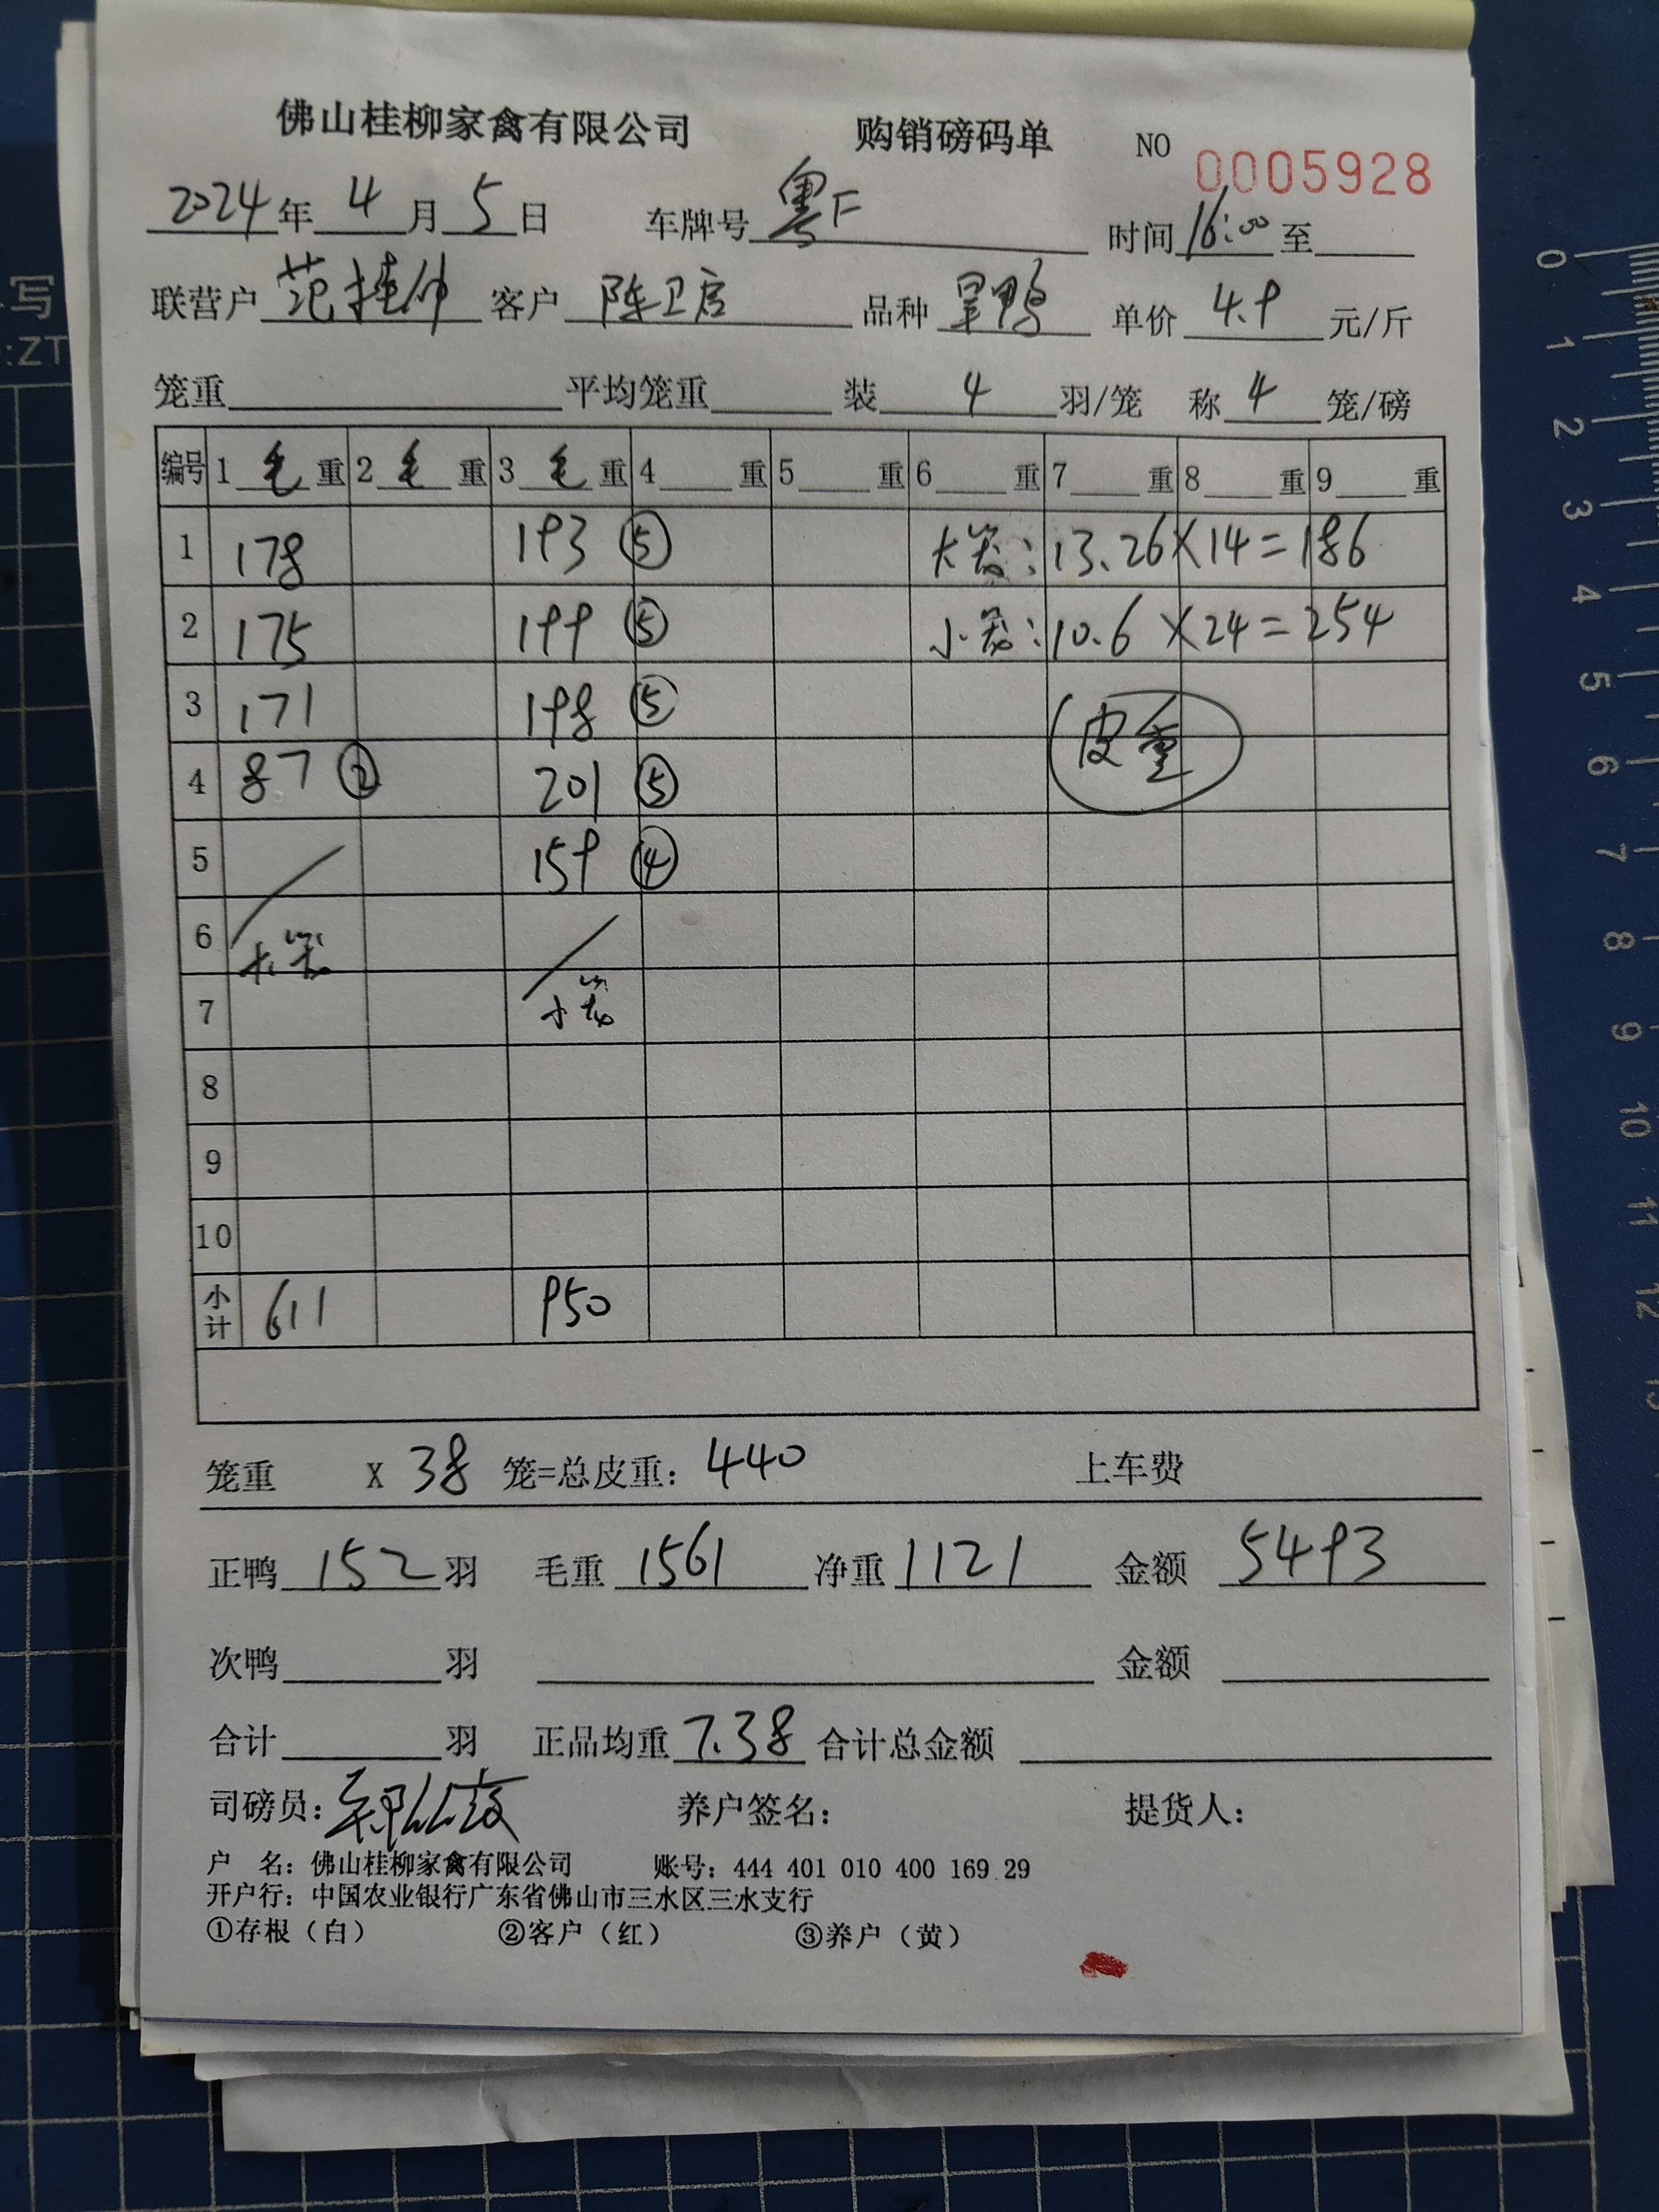 佛山桂柳家禽有限公司 购销磅码单 NO 0005928
2024年 4月 5日 车牌号 粤F 时间 16:00 至
联营户 范桂仲 客户 陈卫启 品种 旱鸭 单价 4.9 元/斤
笼重 平均笼重 装 4 羽/笼 称 4 笼/磅
编号 1 毛 重 2 毛 重 3 毛 重 4 重 5 重 6 重 7 重 8 重 9 重
1 178 193 ⑤ 大笼:13.26×14=186
2 175 199 ⑤ 小笼:10.6×24=254
3 171 198 ⑤
皮重
4 87 ② 201 ⑤
5 159 ④
6 大笼
7 小笼
8
9
10
小计 611 950
笼重 X 38 笼=总皮重: 440 上车费
正鸭 152 羽 毛重 1561 净重 1121 金额 5493
次鸭 羽 金额
合计 羽 正品均重 7.38 合计总金额
司磅员: 养户签名: 提货人:
户 名: 佛山桂柳家禽有限公司 账号: 444 401 010 400 169 29
开户行: 中国农业银行广东省佛山市三水区三水支行
①存根(白) ②客户(红) ③养户(黄)
写
:ZT
0
1
2
3
4
5
6
7
8
9
10
11
12
13